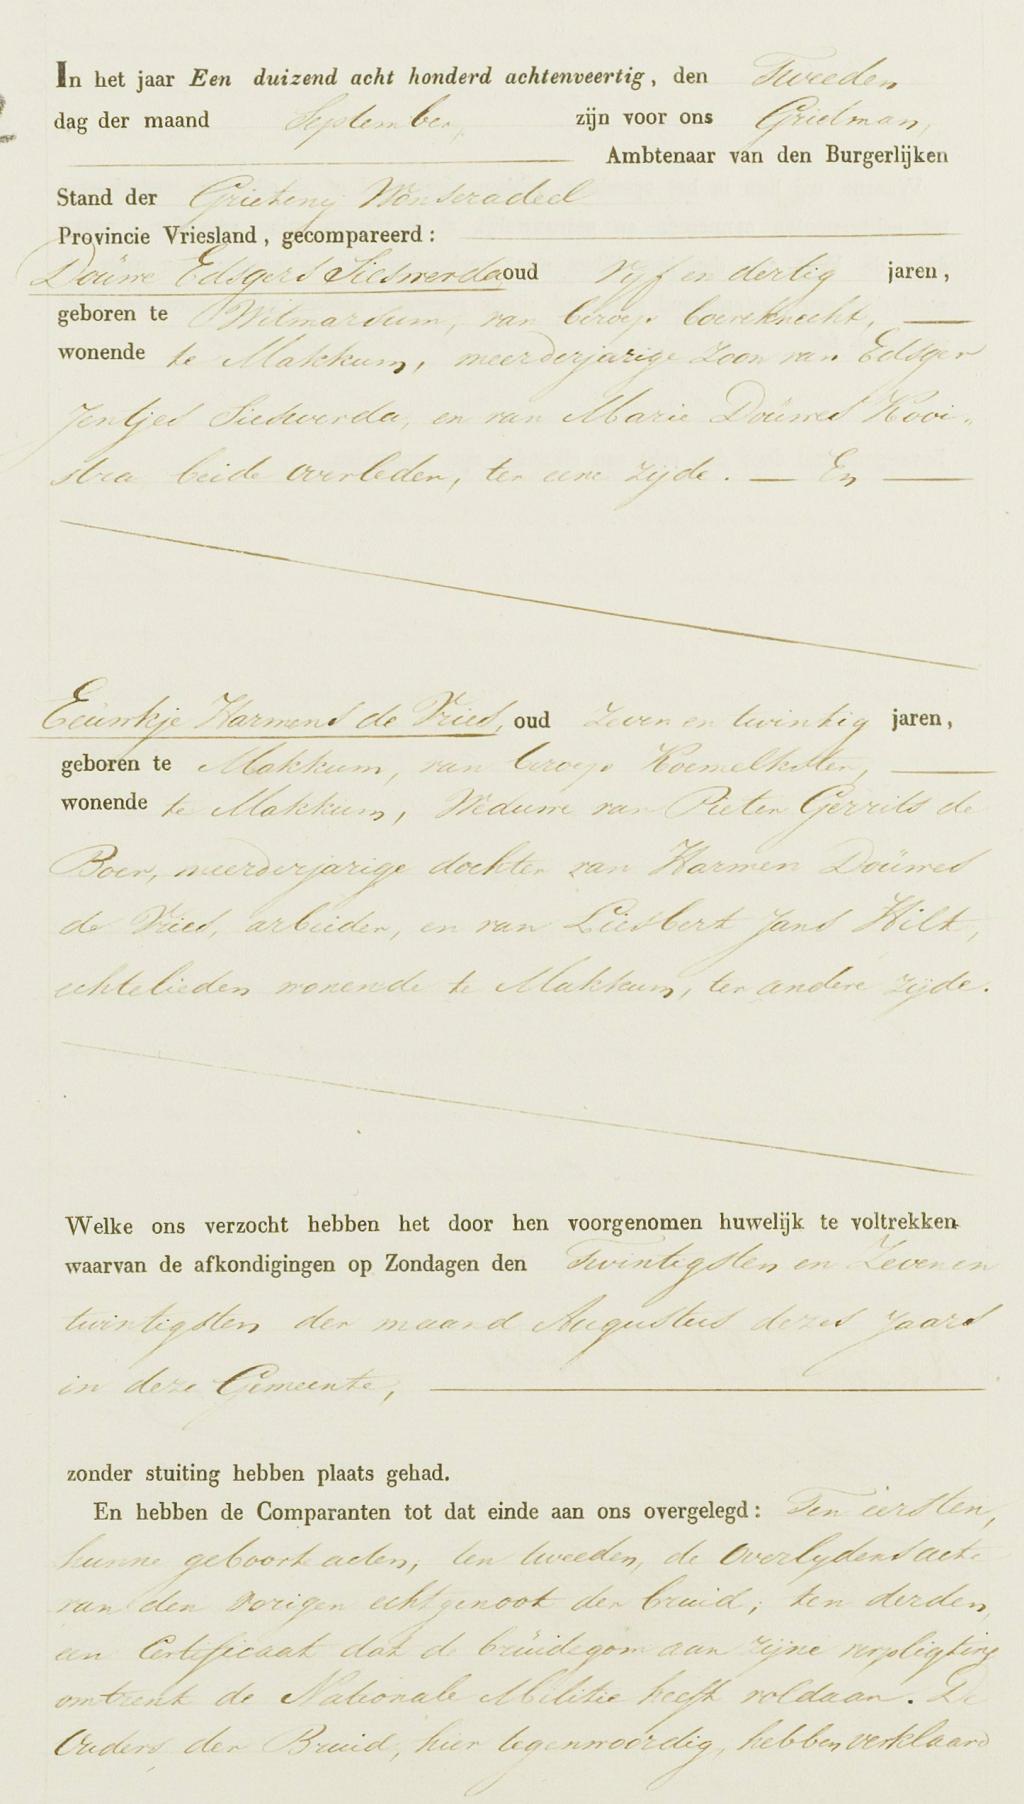 In het jaar Een duizend acht honderd achtenveertig, den Tweeden
dag der maand September, zijn voor ons Grietman,
Ambtenaar van den Burgerlijken
Stand der Grieteny Wonseradeel
Provincie Vriesland, gecompareerd:
Douwe Edsgers Sieswerda oud Vyf en dertig jaren,
geboren te Witmarsum, van beroep boereknecht,
wonende te Makkum, meerderjarige zoon van Edsger
Jentjes Sieswerda, en van Marie Douwes Kooi-
stra beide overleden, ter eene zyde. — En —
Eeuwkje Harmens de Vries, oud zeven en twintig jaren,
geboren te Makkum, van beroep Koemelkster,
wonende te Makkum, Weduwe van Pieter Gerrits de
Boer, meerderjarige dochter van Harmen Douwes
de Vries, arbeider, en van Liesbert Jans Hilt,
echtelieden wonende te Makkum, ter andere zyde.
Welke ons verzocht hebben het door hen voorgenomen huwelijk te voltrekken
waarvan de afkondigingen op Zondagen den Twintigsten en Zeven en
twintigsten der maand Augustus dezes jaars
in deze Gemeente,
zonder stuiting hebben plaats gehad.
En hebben de Comparanten tot dat einde aan ons overgelegd: Ten eersten,
hunne geboorteacten, ten tweeden, de Overlydensacte
van den vorigen echtgenoot der bruid; ten derden,
een Certificaat dat de bruidegom aan zyne verpligting
omtrent de Nationale Militie heeft voldaan. De
Ouders der Bruid, hier tegenwoordig, hebben verklaard